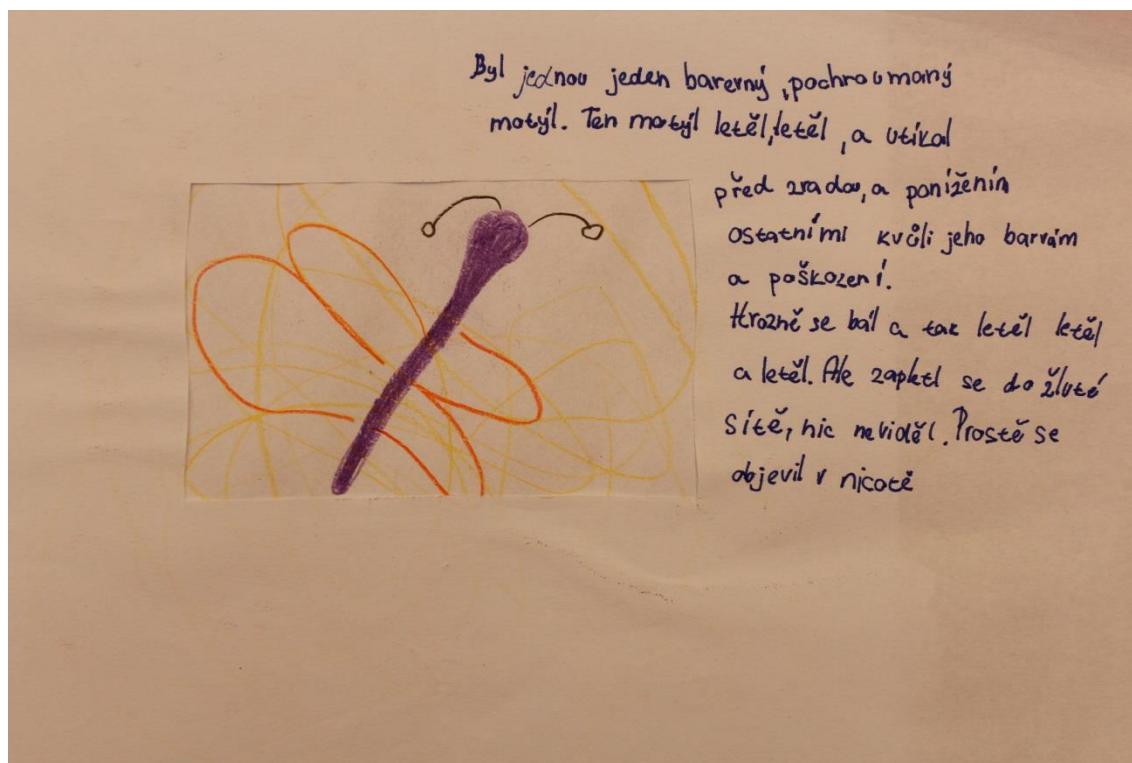 Byl jednou jeden barevný, pochroumaný
motýl. Ten motýl letěl, letěl, a utíkal
před zradou, a ponížením
ostatními kvůli jeho barvám
a poškození.
Hrozně se bál a tak letěl letěl
a letěl. Ale zapletl se do žluté
sítě, nic neviděl. Prostě se
objevil v nicotě